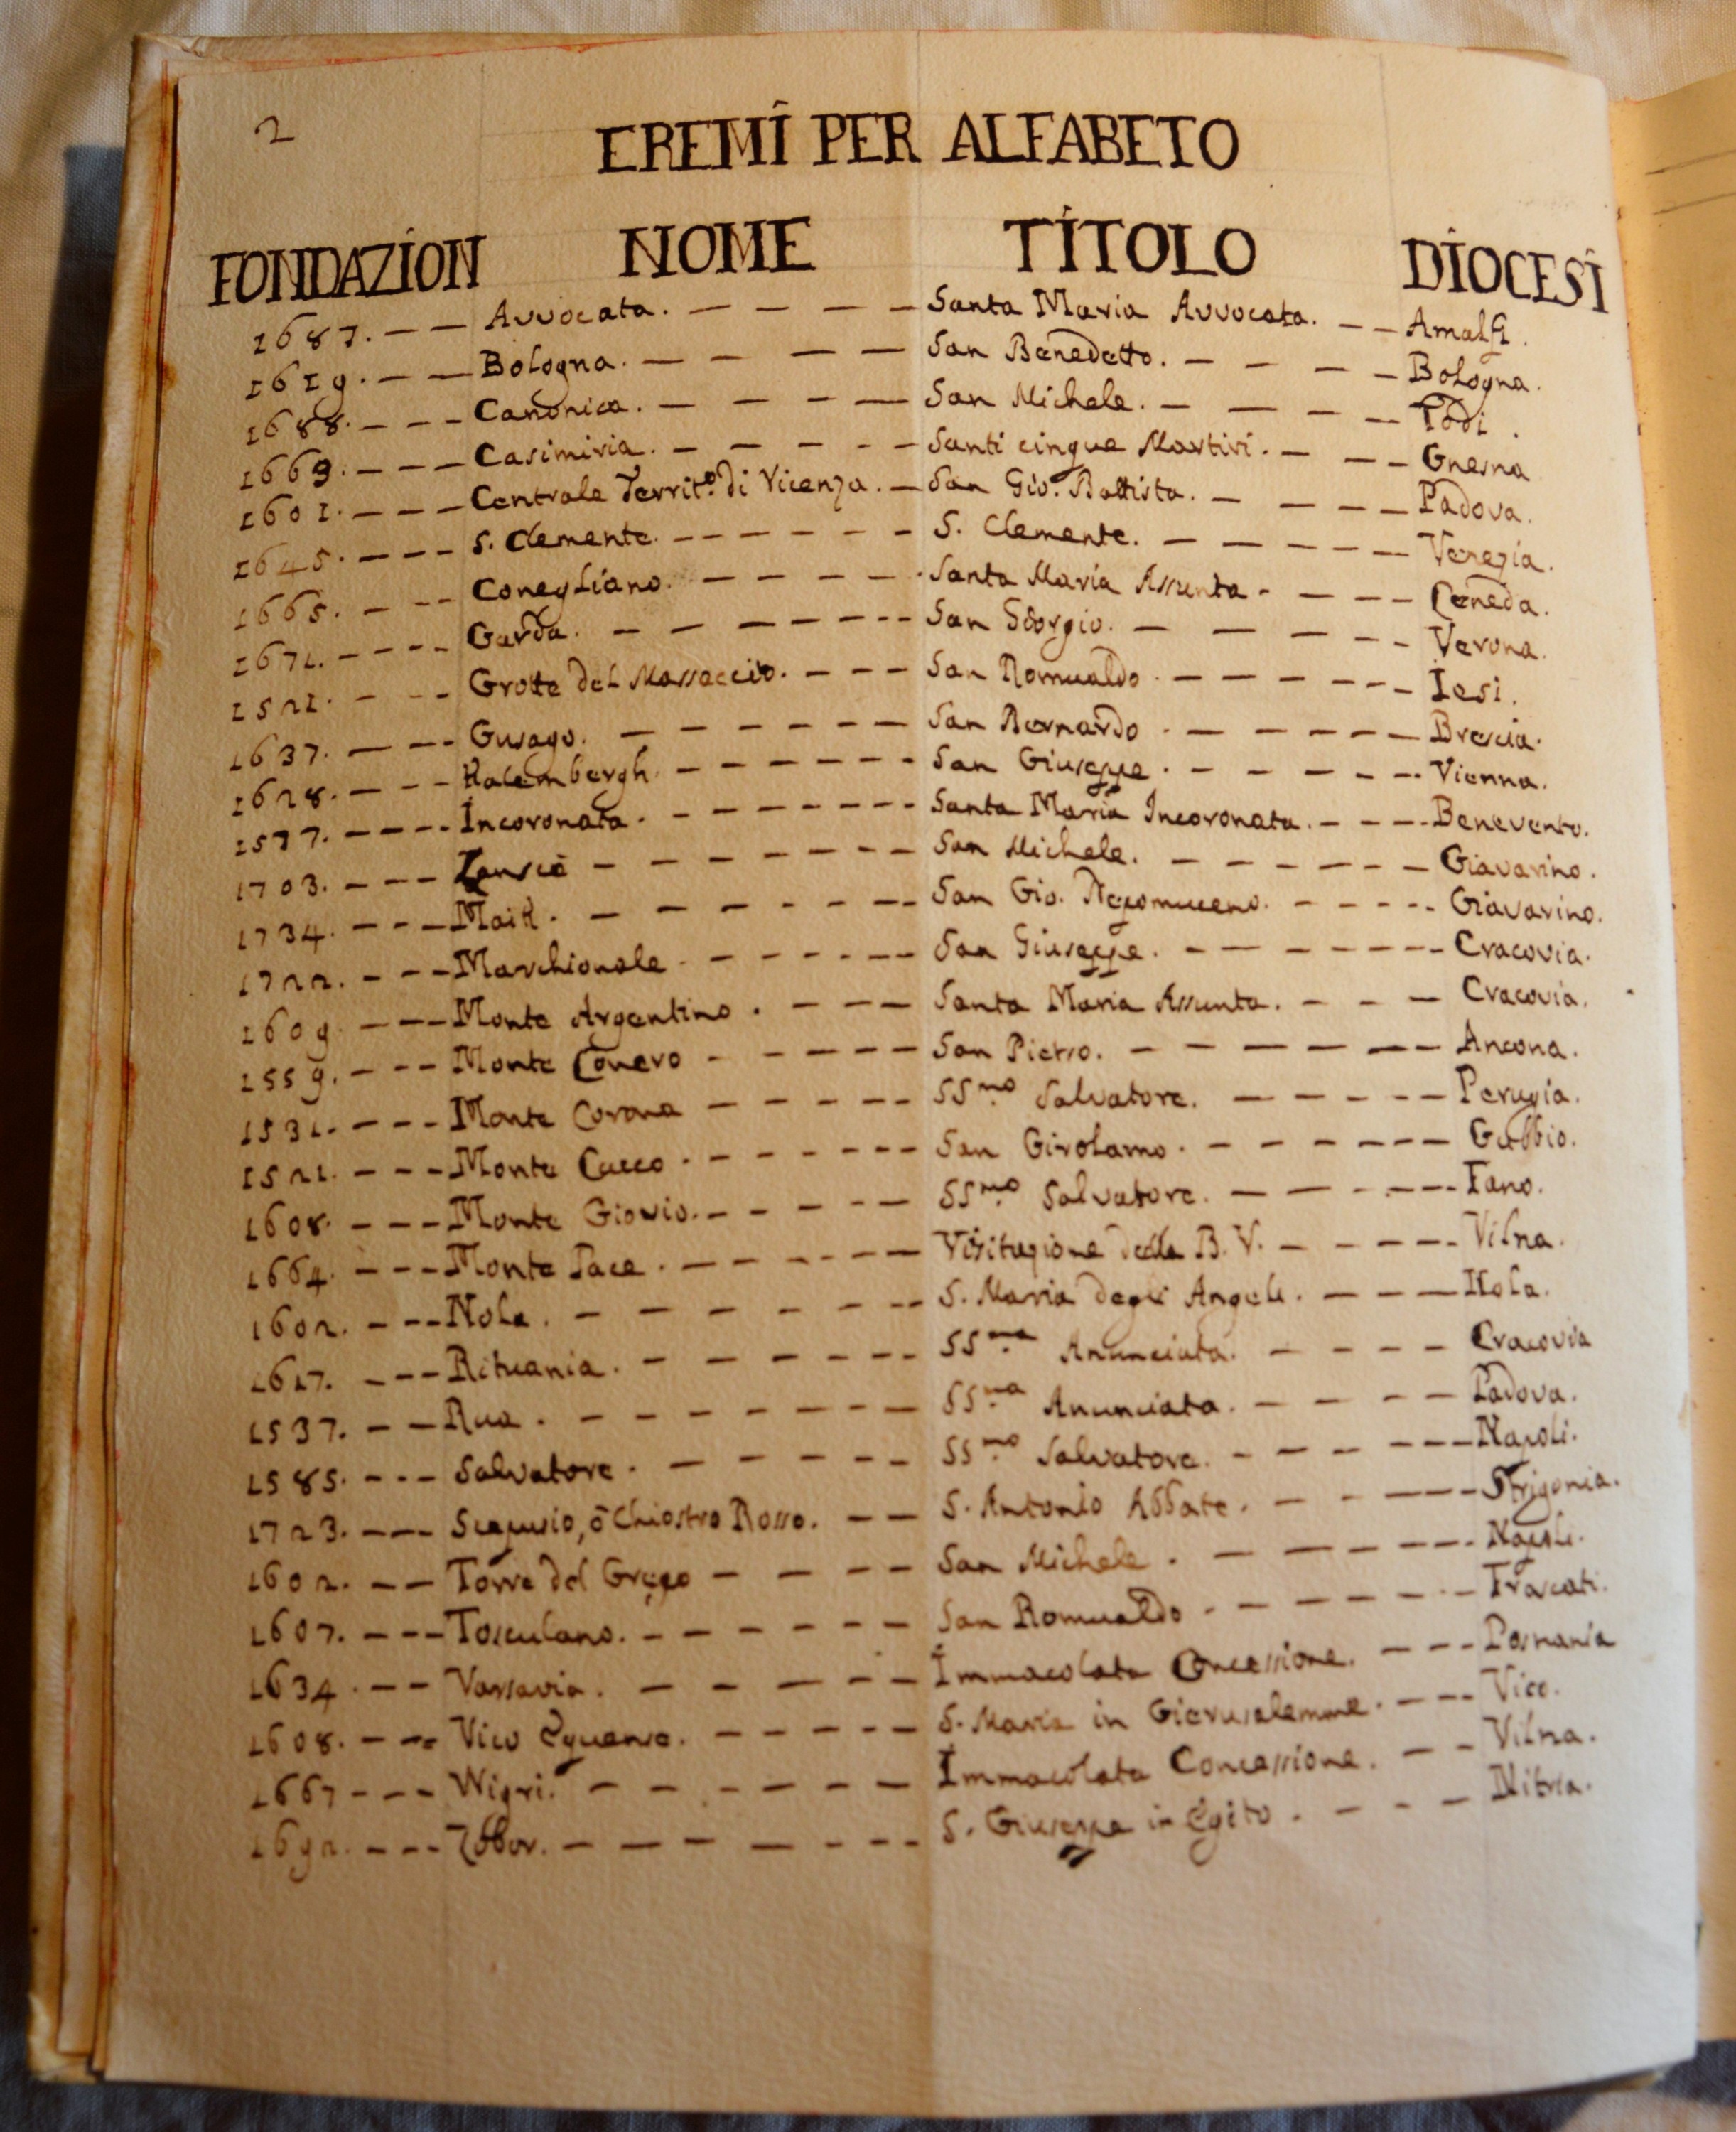 2
EREMI PER ALFABETO
FONDAZION NOME TITOLO DIOCESI
1687. --- Avvocata. ---- Santa Maria Avvocata. -- Amalfi.
1619. --- Bologna. ---- San Benedetto. ---- Bologna.
1688. --- Canonica. ---- San Michele. ---- Todi.
1669. --- Casimiria. ----- Santi cinque Martiri. --- Gnesna
1601. --- Centrale Territ.o di Vicenza. - San Gio. Battista. ---- Padova.
1645. --- S. Clemente. ------ S. Clemente. ----- Venezia.
1665. --- Conegliano. ---- Santa Maria Assunta. ---- Ceneda.
1671. ---- Garda. ------- San Giorgio. ----- Verona.
1521. --- Grotte del Massaccio. --- San Romualdo. ------ Iesi.
1637. --- Gusago. ------ San Bernardo. ----- Brescia.
1628. --- Kalembergh. ------ San Giuseppe. ----- Vienna.
1577. ---- Incoronata. ------- Santa Maria Incoronata. ---- Benevento.
1703. --- Lanscè -------- San Michele. ------ Giavarino.
1734. --- Maik. -------- San Gio. Nepomuceno. ----- Giavarino.
1722. --- Marchionale. ------ San Giuseppe. ------- Cracovia.
1609. --- Monte Argentino. --- Santa Maria Assunta. --- Cracovia.
1559. --- Monte Conero ------ San Pietro. ------ Ancona.
1531. --- Monte Corona ----- SS.mo Salvatore. ----- Perugia.
1521. --- Monte Cucco. ------ San Girolamo. ------ Gubbio.
1608. --- Monte Giovio. ----- SS.mo Salvatore. ----- Fano.
1664. --- Monte Pace. ------ Visitazione della B. V. ----- Vilna.
1602. --- Nola. ------- S. Maria degli Angeli. --- Nola.
1617. --- Rituania. ------ SS.ma Anunciata. ---- Cracovia
1537. -- Rua. -------- SS.ma Anunciata. ---- Padova.
1585. --- Salvatore. ----- SS.mo Salvatore. ------ Napoli.
1723. --- Scepusio, ò Chiostro Rosso. -- S. Antonio Abbate. ----- Strigonia.
1602. -- Torre del Greco ---- San Michele. ------ Napoli.
1607. --- Tosculano. ------ San Romualdo ------ Frascati.
1634. -- Varsavia. ------ Immacolata Concessione. --- Posnania
1608. --- Vico Equense. ----- S. Maria in Gierusalemme. --- Vico.
1667 --- Wigri. ------ Immacolata Concessione. -- Vilna.
1692. --- Zobor. ------- S. Giuseppe in Egito. ---- Nitria.